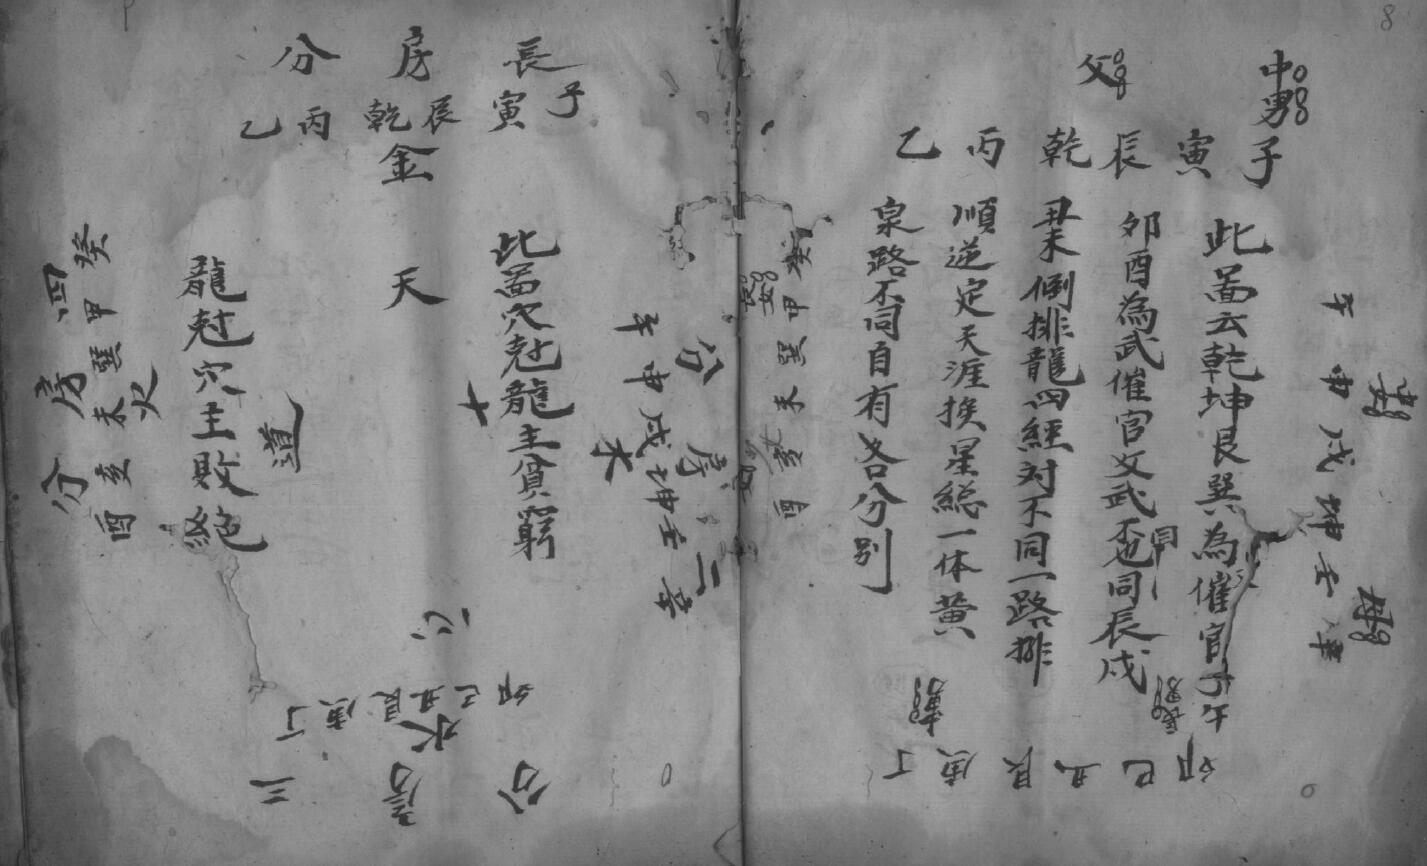 中男
父
子寅辰乾丙乙
午申戌坤壬辛
此啚云乾坤艮巽為催官子午
卯酉為武催官文武不也同辰戌
丑未倒排龍四經对不同一路排
順逆定天涯换星総一体黄
泉路不同自有各分别
卯巳丑艮庚丁
癸甲巽未亥酉
長房分
子寅辰乾丙乙
金
二房分
午申戌坤壬辛
木
此啚穴尅龍主貧窮
天
心
十
道
龍尅穴主敗絶
卯巳丑艮庚丁
水
三房分
四房分
癸甲巽未亥酉
火
8